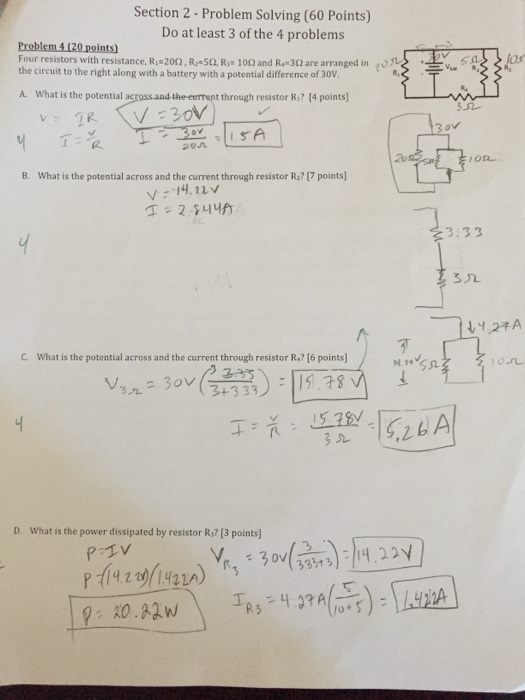 Section 2 - Problem Solving (60 Points)
Do at least 3 of the 4 problems
Problem 4 (20 points)
Four resistors with resistance, R₁=20Ω, R₂=5Ω, R₃= 10Ω and R₄=3Ω are arranged in
the circuit to the right along with a battery with a potential difference of 30V.
20Ω R₁ 30V 5Ω R₂ 10Ω R₃
R₄
3Ω
A. What is the potential across and the current through resistor R₁? [4 points]
V = IR V = 30V ✓
4 I = V/R I = 30V/20Ω = 1.5 A
30V
20Ω 5Ω 10Ω
B. What is the potential across and the current through resistor R₂? [7 points]
V = 14.22V
I = 2.844A
4
3.33
3Ω
4.27A
C. What is the potential across and the current through resistor R₄? [6 points]
5Ω 10Ω
V3Ω = 30V ( /3+3.33) = 15.78 V
4 I = V/R = 15.78V/3Ω = 5.26 A
D. What is the power dissipated by resistor R₃? [3 points]
P=IV VR₃ = 30V(3/3.33+3) = 14.22V
P=(14.22V)(1.422A)
IR3 = 4.27A(5/10+5) = 1.422A
P= 20.22W